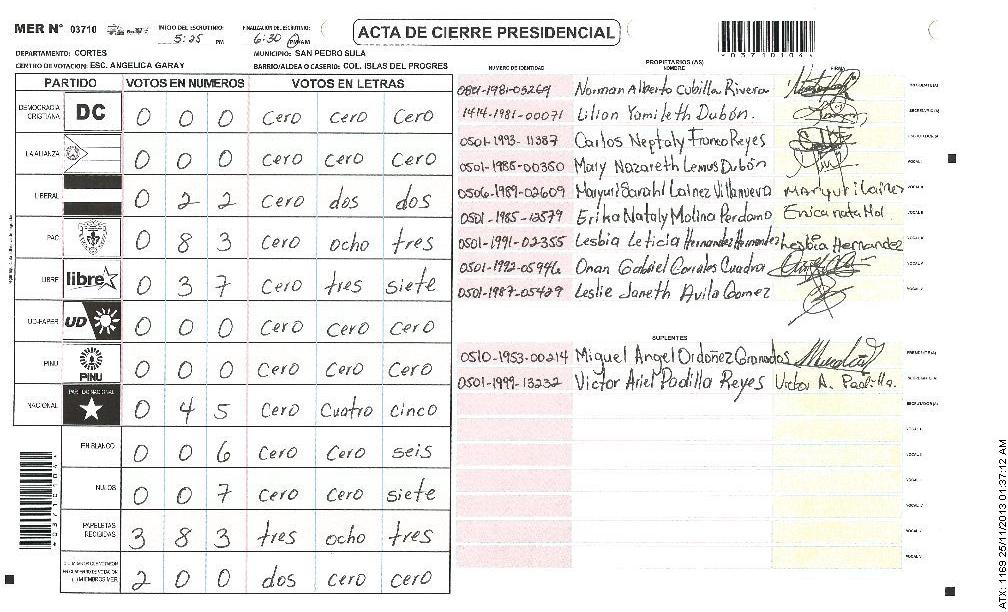 MER N° 03710
INICIO DEL ESCRUTINIO: 5:25 PM
FINALIZACIÓN DEL ESCRUTINIO: 6:30 PM AM
ACTA DE CIERRE PRESIDENCIAL
DEPARTAMENTO: CORTES
MUNICIPIO: SAN PEDRO SULA
CENTRO DE VOTACION: ESC. ANGELICA GARAY
BARRIO/ALDEA O CASERIO: COL. ISLAS DEL PROGRES
PARTIDO VOTOS EN NUMEROS VOTOS EN LETRAS
DEMOCRACIA CRISTIANA DC 0 0 0 Cero cero Cero
LA ALIANZA 0 0 0 Cero Cero Cero
LIBERAL 0 2 2 Cero dos dos
PAC 0 8 3 Cero ocho tres
LIBRE libre 0 3 7 Cero tres siete
UD-FAPER UD 0 0 0 Cero Cero Cero
PINU PINU 0 0 0 Cero Cero Cero
NACIONAL PARTIDO NACIONAL 0 4 5 Cero Cuatro cinco
EN BLANCO 0 0 6 Cero Cero seis
NULOS 0 0 7 Cero Cero siete
PAPELETAS RECIBIDAS 3 8 3 tres ocho tres
2 0 0 dos cero cero
NUMERO DE IDENTIDAD PROPIETARIOS (AS) NOMBRE FIRMA
0801-1981-03269 Norman Alberto Cubilla Rivera PRESIDENTE(A)
1414-1981-00071 Lilian Yamileth Dubón. SECRETARIO(A)
0501-1993-11387 Carlos Neptaly Franco Reyes
0501-1985-00350 Mary Nazareth Lemus Dubón VOCAL I
0506-1989-02609 Maryuri Sarahí Lainez Villanueva Maryuri Lainez VOCAL II
0501-1985-12579 Erika Nataly Molina Perdomo VOCAL III
0501-1991-02355 Lesbia Leticia Hernandez Hernandez Lesbia Hernandez
0501-1992-05946 Onan Gabriel Corrales Cuadra VOCAL V
0501-1987-05429 Leslie Janeth Avila Gomez
SUPLENTES
0510-1953-00214 Miguel Angel Ordoñez Granados PRESIDENTE(A)
0501-1999-13232 Victor Ariel Padilla Reyes Victor A. Padilla. SECRETARIO(A)
ESCRUTADOR(A)
VOCAL I
VOCAL II
ATX: 1169 25/11/2013 01:37:12 AM